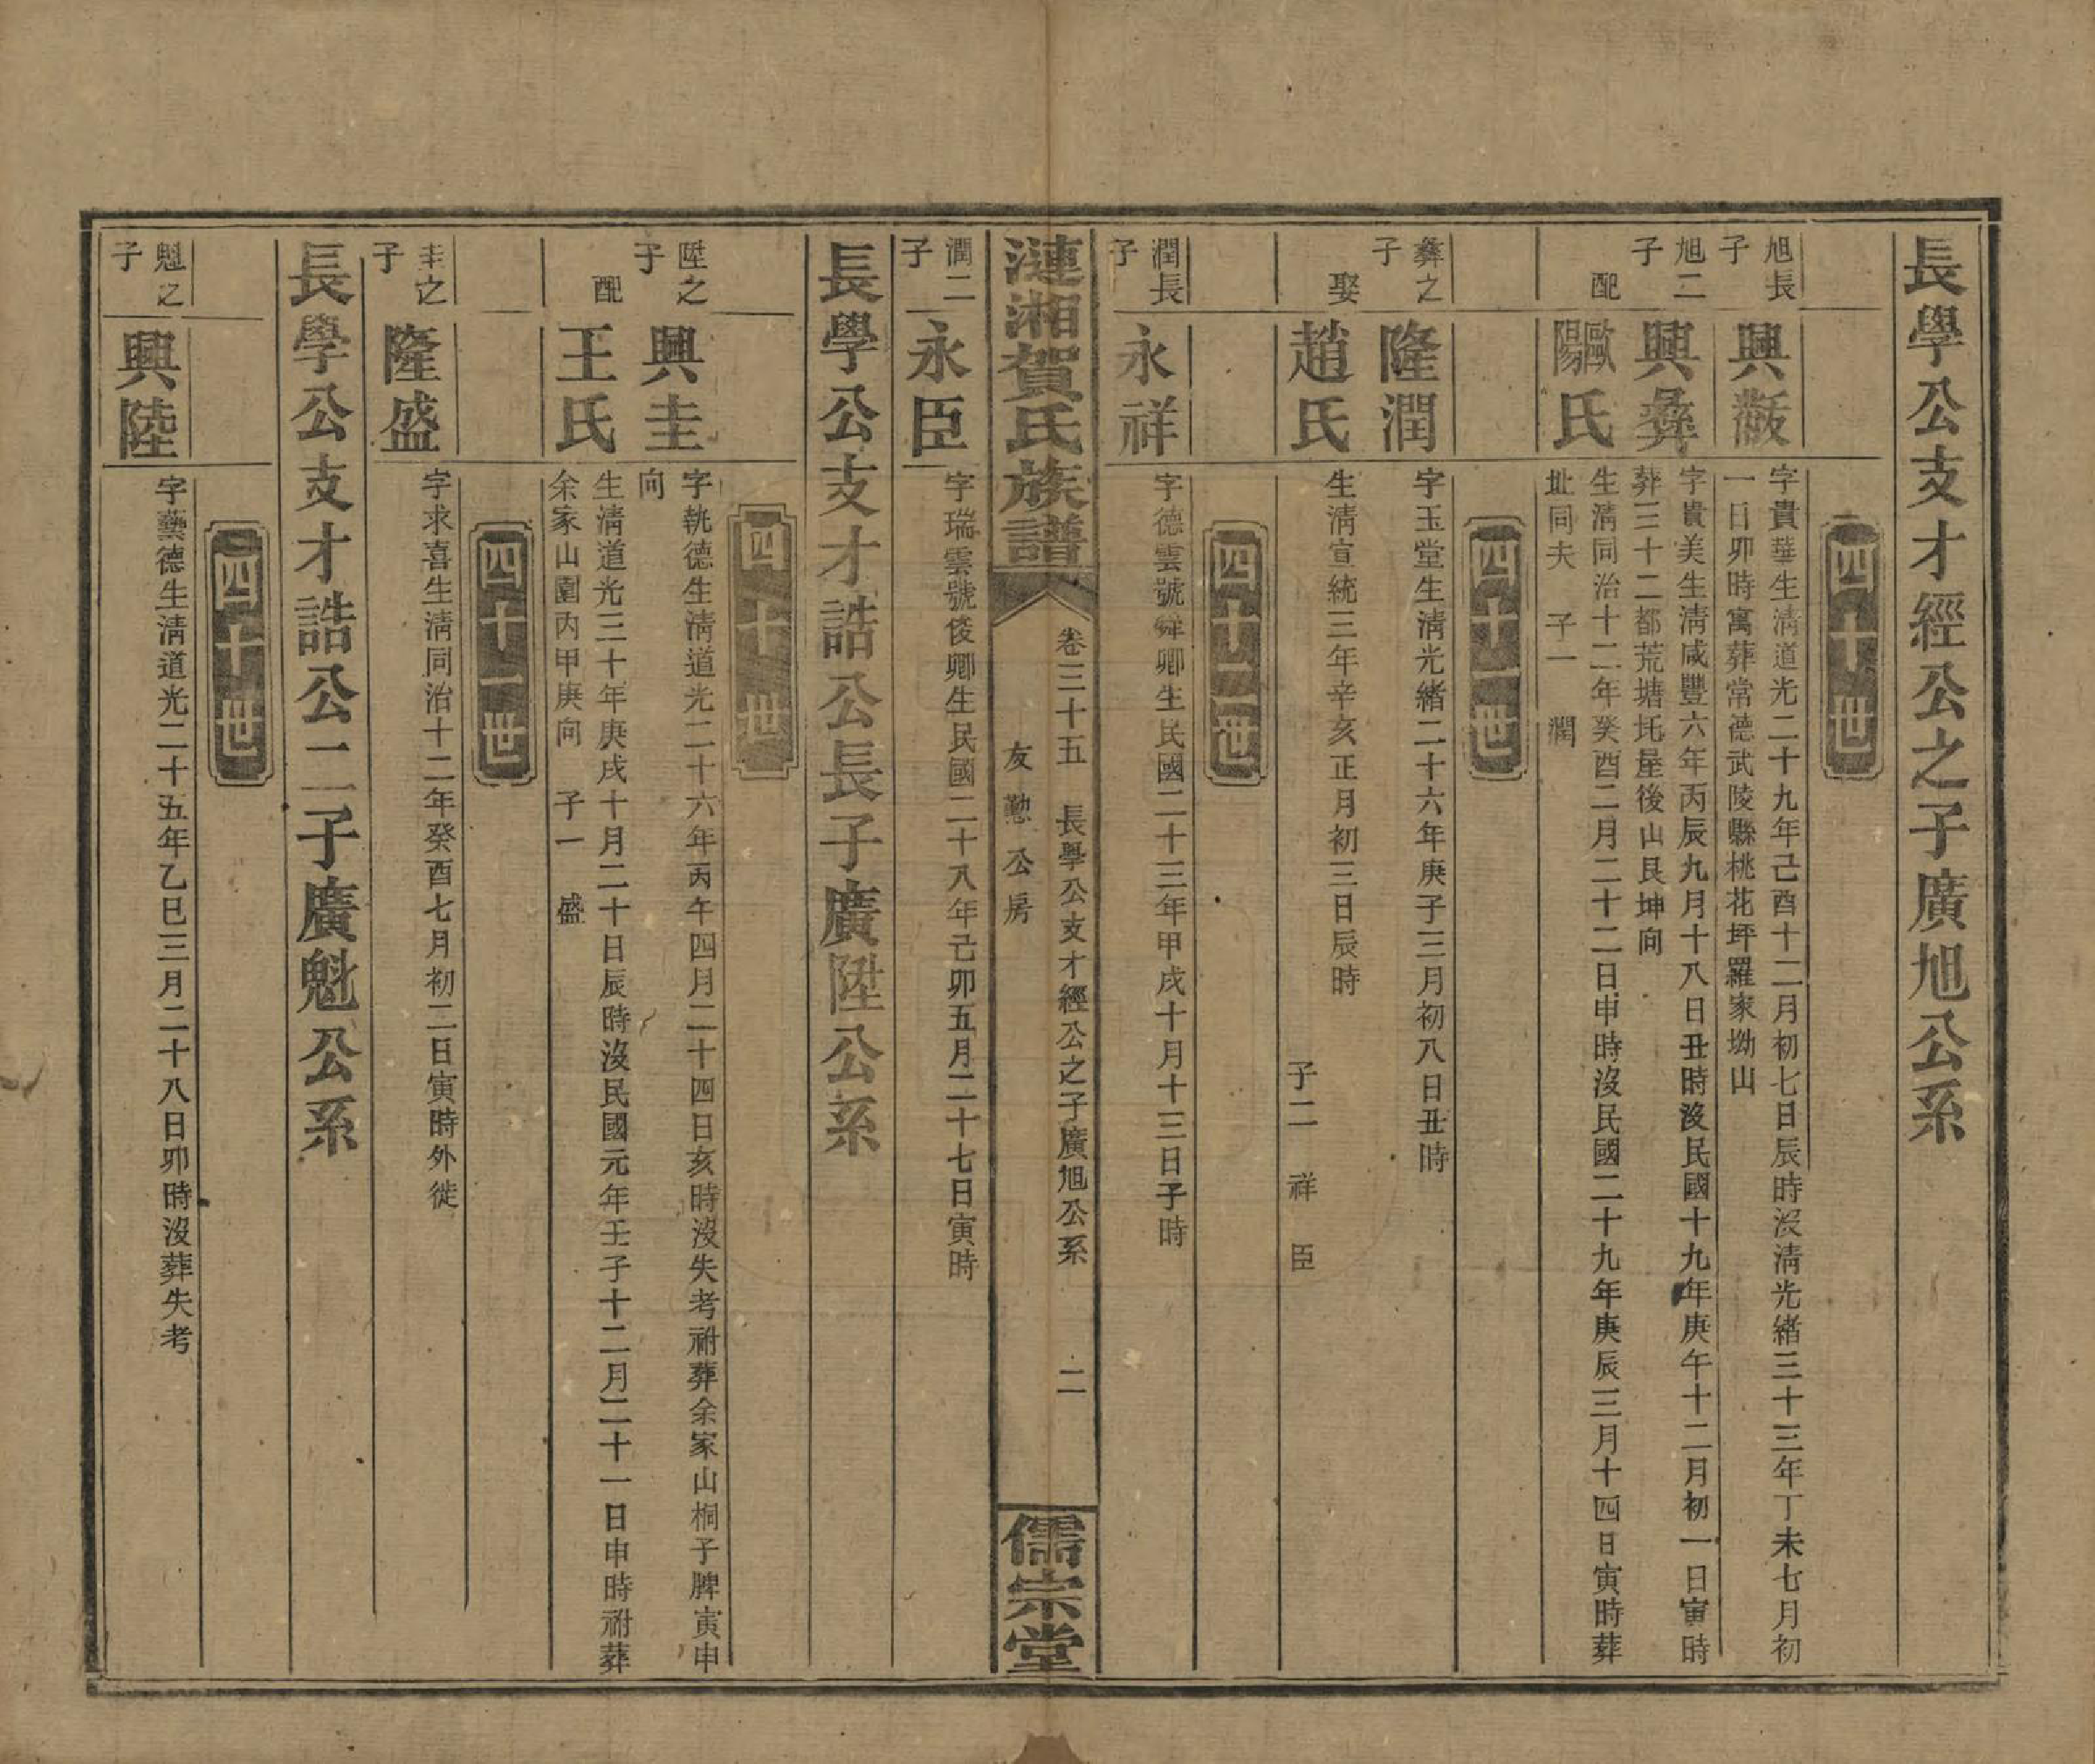 長學公支才經公之子廣旭公系
四十世
旭長子
興黻
字貴華生清道光二十九年己酉十二月初七日辰時沒清光緒三十三年丁未七月初
一日卯時寓葬常德武陵縣桃花坪羅家坳山
旭二子
興彝
字貴美生清咸豐六年丙辰九月十八日丑時沒民國十九年庚午十二月初一日寅時
葬三十二都荒塘圫屋後山艮坤向
配
歐陽氏
生清同治十二年癸酉二月二十二日申時沒民國二十九年庚辰三月十四日寅時葬
址同夫 子一 潤
四十一世
彝之子
隆潤
字玉堂生清光緒二十六年庚子三月初八日丑時
娶
趙氏
生清宣統三年辛亥正月初三日辰時
子二 祥 臣
四十二世
潤長子
永祥
字德雲號舜卿生民國二十三年甲戌十月十三日子時
漣湘賀氏族譜
卷三十五 長學公支才經公之子廣旭公系 二
友懃公房
儒宗堂
潤二子
永臣
字瑞雲號俊卿生民國二十八年己卯五月二十七日寅時
長學公支才誥公長子廣陞公系
四十世
陞之子
興圭
字執德生清道光二十六年丙午四月二十四日亥時沒失考祔葬余家山桐子脾寅申
向
配
王氏
生清道光三十年庚戌十月二十日辰時沒民國元年壬子十二月二十一日申時祔葬
余家山圍內甲庚向 子一 盛
四十一世
圭之子
隆盛
字求喜生清同治十二年癸酉七月初二日寅時外徙
長學公支才誥公二子廣魁公系
四十世
魁之子
興陸
字藝德生清道光二十五年乙巳三月二十八日卯時沒葬失考